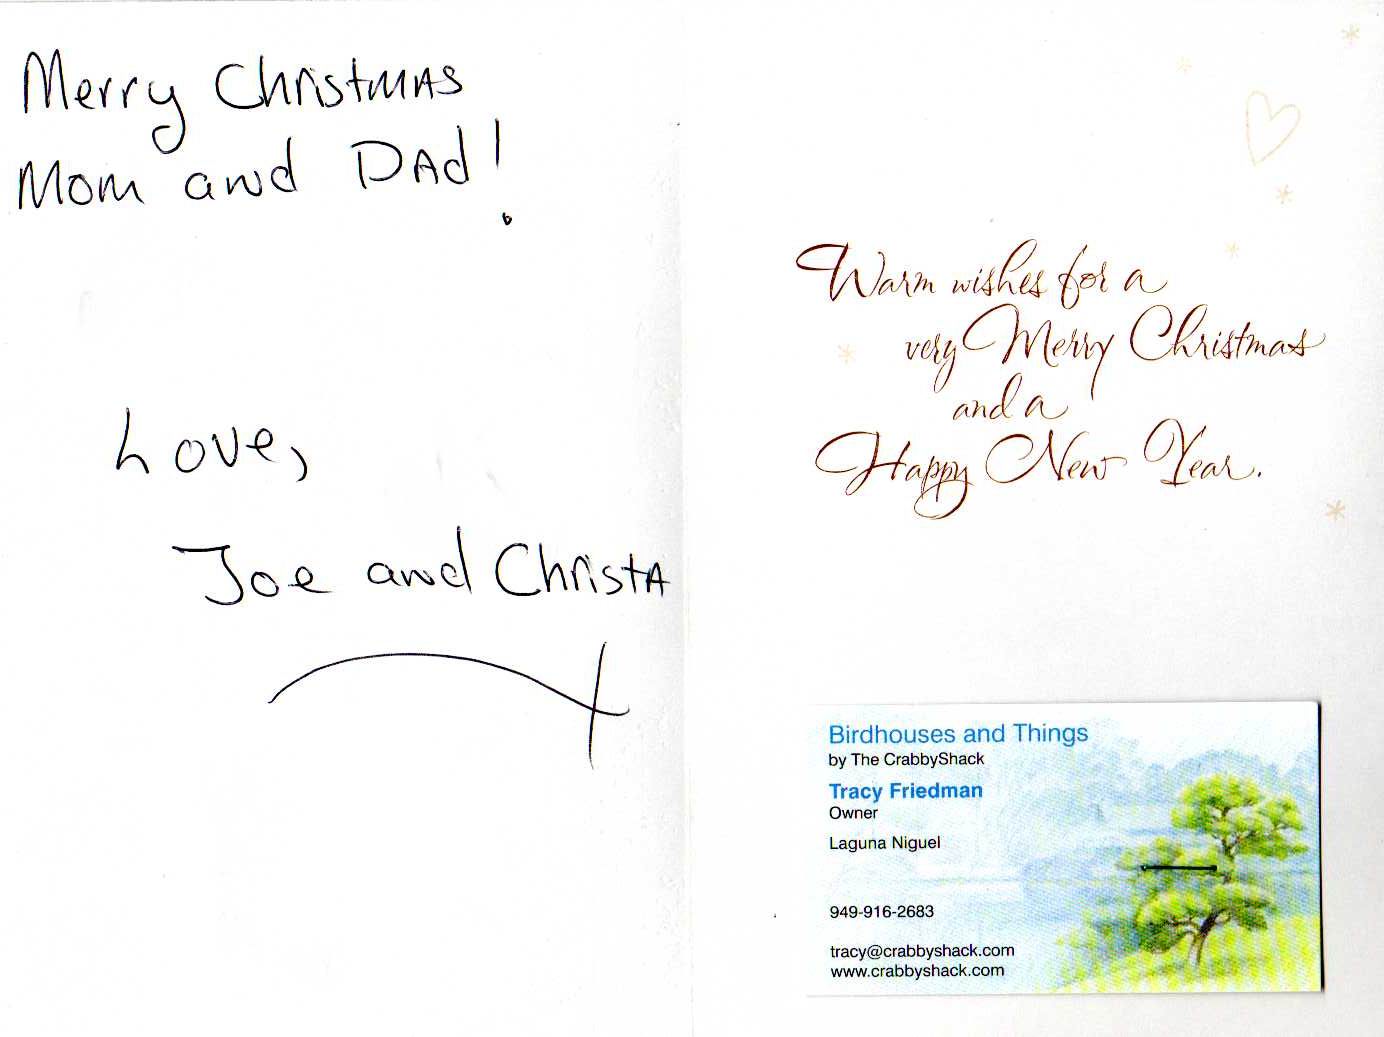 Merry Christmas
Mom and Dad!
Love,
Joe and Christa
Warm wishes for a
very Merry Christmas
and a
Happy New Year.
Birdhouses and Things
by The CrabbyShack
Tracy Friedman
Owner
Laguna Niguel
949-916-2683
tracy@crabbyshack.com
www.crabbyshack.com